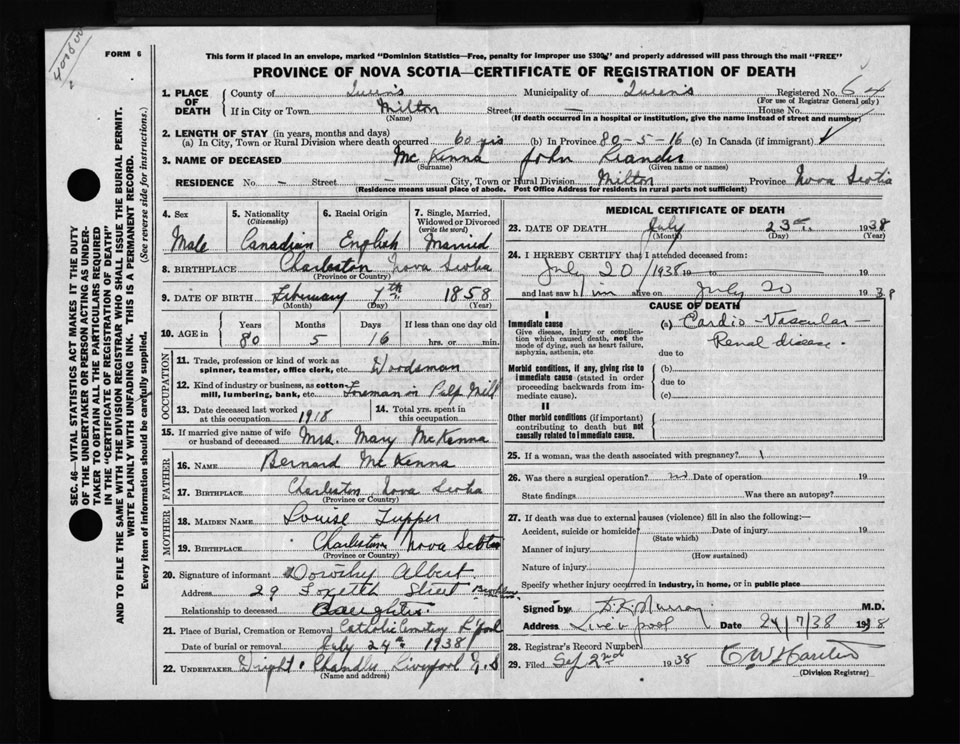 FORM 6
This form if placed in an envelope, marked "Dominion Statistics—Free, penalty for improper use $300," and properly addressed will pass through the mail "FREE"
PROVINCE OF NOVA SCOTIA—CERTIFICATE OF REGISTRATION OF DEATH
SEC. 46—VITAL STATISTICS ACT MAKES IT THE DUTY
OF THE UNDERTAKER OR PERSON ACTING AS UNDER-
TAKER TO OBTAIN ALL THE PARTICULARS REQUIRED
IN THE "CERTIFICATE OF REGISTRATION OF DEATH"
AND TO FILE THE SAME WITH THE DIVISION REGISTRAR WHO SHALL ISSUE THE BURIAL PERMIT.
WRITE PLAINLY WITH UNFADING INK. THIS IS A PERMANENT RECORD.
Every item of information should be carefully supplied. (See reverse side for instructions.)
1. PLACE OF DEATH County of Queen's Municipality of Queen's Registered No. 64
(For use of Registrar General only)
If in City or Town Milton Street — House No.
(Name) (If death occurred in a hospital or institution, give the name instead of street and number)
2. LENGTH OF STAY (in years, months and days)
(a) In City, Town or Rural Division where death occurred 60 yrs (b) In Province 80-5-16 (c) In Canada (if immigrant)
3. NAME OF DECEASED McKenna John
(Surname) (Given name or names)
RESIDENCE No. — Street — City, Town or Rural Division Milton Province Nova Scotia
(Residence means usual place of abode. Post Office Address for residents in rural parts not sufficient)
4. Sex Male
5. Nationality (Citizenship) Canadian
6. Racial Origin English
7. Single, Married, Widowed or Divorced (write the word) Married
8. BIRTHPLACE Charleston Nova Scotia
(Province or Country)
9. DATE OF BIRTH February 7th 1858
(Month) (Day) (Year)
10. AGE in Years 80 Months 5 Days 16 If less than one day old hrs. or min.
OCCUPATION
11. Trade, profession or kind of work as spinner, teamster, office clerk, etc. Woodsman
12. Kind of industry or business, as cotton mill, lumbering, bank, etc. Foreman in Pulp Mill
13. Date deceased last worked at this occupation 1918
14. Total yrs. spent in this occupation
15. If married give name of wife or husband of deceased Mrs. Mary McKenna
FATHER
16. NAME Bernard McKenna
17. BIRTHPLACE Charleston Nova Scotia
(Province or Country)
MOTHER
18. MAIDEN NAME Louise Tupper
19. BIRTHPLACE Charleston Nova Scotia
(Province or Country)
20. Signature of informant Dorothy Albert
Address 29 Street
Relationship to deceased Daughter
21. Place of Burial, Cremation or Removal Catholic Cemetery L'pool
Date of burial or removal July 24th 1938
22. UNDERTAKER Chandler Liverpool N.S
(Name and address)
MEDICAL CERTIFICATE OF DEATH
23. DATE OF DEATH July 23rd 1938
(Month) (Day) (Year)
24. I HEREBY CERTIFY that I attended deceased from:
July 20/1938 19 to 19
and last saw him alive on July 20 1938
CAUSE OF DEATH
I
Immediate cause
Give disease, injury or complication which caused death, not the mode of dying, such as heart failure, asphyxia, asthenia, etc
(a) Cardio-Vascular-
Renal disease.
due to
Morbid conditions, if any, giving rise to immediate cause (stated in order proceeding backwards from immediate cause).
(b)
due to
(c)
II
Other morbid conditions (if important) contributing to death but not causally related to immediate cause.
25. If a woman, was the death associated with pregnancy?
26. Was there a surgical operation? no Date of operation 19
State findings Was there an autopsy?
27. If death was due to external causes (violence) fill in also the following:—
Accident, suicide or homicide Date of injury 19
(State which)
Manner of injury
(How sustained)
Nature of injury
Specify whether injury occurred in industry, in home, or in public place
Signed by Murray M.D.
Address Liverpool Date 24/7/38 1938
28. Registrar's Record Number
29. Filed Sep 2nd 1938
(Division Registrar)